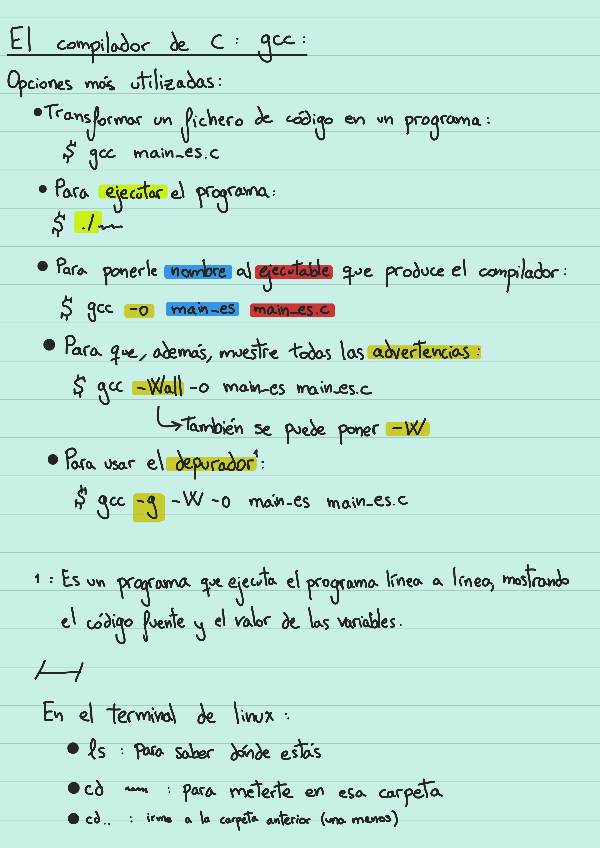 El compilador de C: gcc:
Opciones más utilizadas:
•Transformar un fichero de código en un programa:
$ gcc main_es.c
• Para ejecutar el programa:
$ ./
• Para ponerle nombre al ejecutable que produce el compilador:
$ gcc -o main_es main_es.c
• Para que, además, muestre todas las advertencias:
$ gcc -Wall -o main_es main_es.c
↳También se puede poner -W
• Para usar el depurador¹:
$ gcc -g -W -o main_es main_es.c
1: Es un programa que ejecuta el programa línea a línea, mostrando
el código fuente y el valor de las variables.
En el terminal de linux:
• ls : Para saber dónde estás
• cd ~~ : para meterte en esa carpeta
• cd.. : irme a la carpeta anterior (una menos)